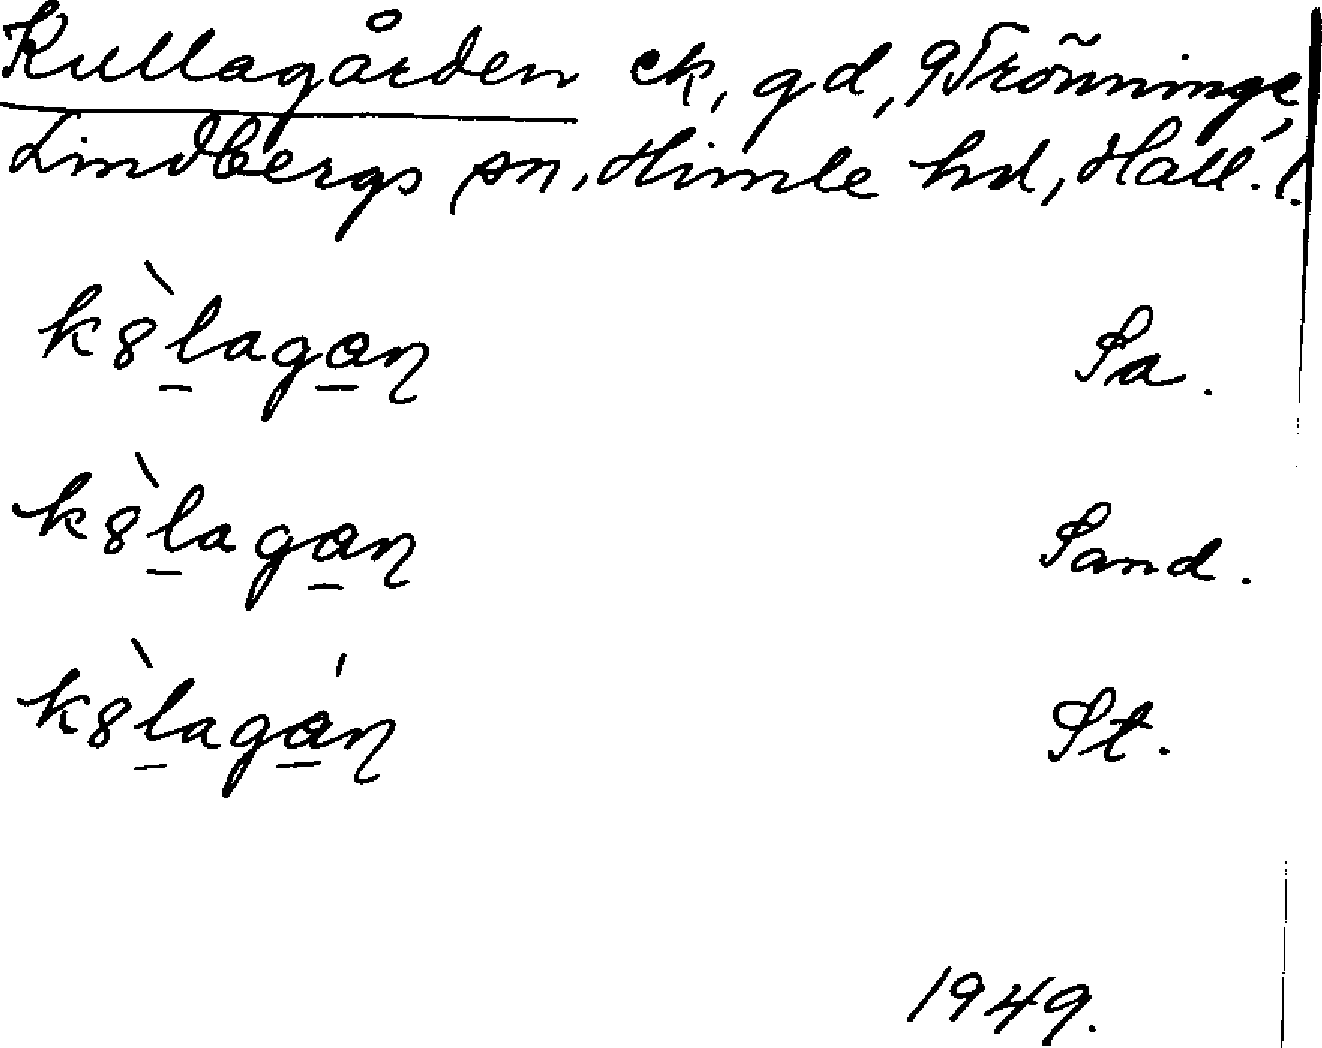 Kullagården ek, gd, Trönninge,
Lindbergs sn, Himle hd, Hall. l.
k8̀lagan Sa.
k8̀lagan Sand.
k8̀lagán St.
1949.